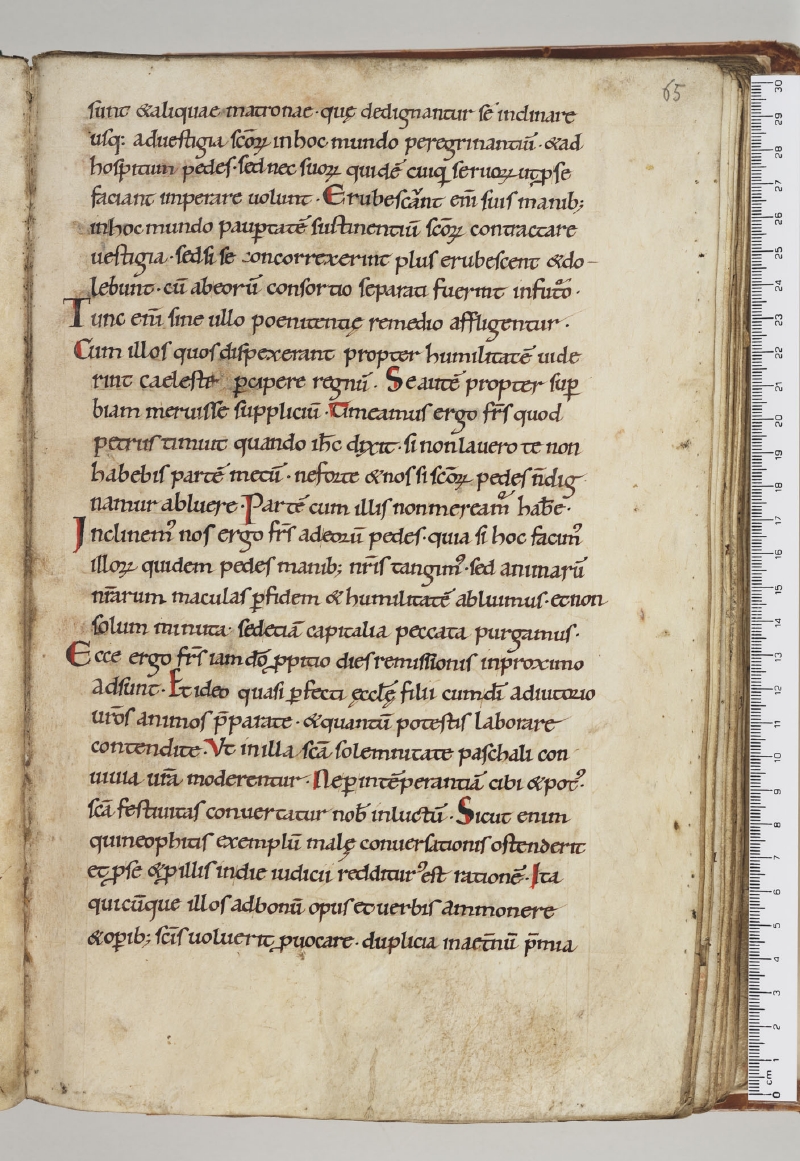 65
sunt &aliquae matronae · quę dedignantur se inclinare
usq: aduestigia scōꝝ inhoc mundo peregrinantiū · &ad
hospitum pedes · sed nec suoꝝ quidē cuiq seruoꝝ ut ꝑse
faciant imperare uolunt · Erubescant em̄ suis manib;
inhoc mundo pauꝑtatē sustinentiū scōꝝ contractare
uestigia · sedsi se concorrexerint plus erubescent &do-
lebunt · cū abeorū consortio separati fuerint infut̄o ·
Tunc em̄ sine ullo poenitentię remedio affligentur ·
Cum illos quos dispexerant propter humilitatē uide
rint caeleste ꝑcipere regnū · Se autē propter suꝑ
biam meruisse suppliciū · Timeamus ergo fr̄s quod
petrus timuit quando ih̄c dixit · si nonlauero te non
habebis partē mecū · neforte &nos si scōꝝ pedes n̄dig
namur abluere · Partē cum illis nonmeream̄ hab̄e ·
Inclinem᾿ nos ergo fr̄s adeorū pedes · quia si hoc facim᾿
illoꝝ quidem pedes manib; nr̄is tangim᾿ · sed animarū
nr̄arum maculas ꝑfidem & humilitatē abluimus · etnon
solum minuta · sedetiā capitalia peccata purgamus ·
Ecce ergo fr̄s iam dō ꝓpitio dies remissionis inproximo
adsunt · Et ideo quasi ꝑfecti ęcclę̄ filii cumdī adiutorio
ur̄os animos p̄parate · &quantū potestis laborare
contendite · Vt inilla scā solemnitate paschali con
uiuia ur̄a moderentur · Neꝑ intēperantiā cibi &pot᾿ ·
scā festiuitas conuertatur nob̄ inluctū · Sicut enim
quineophitis exemplū malę conuersationis ostenderit
et ꝑse &ꝑillis indie iudicii redditur᾿ est rationē · Ita
quicūque illos adbonū opus et uerbis ammonere
&oꝑib; sc̄is uoluerit ꝓuocare · duplicia inaet̄nū p̄mia